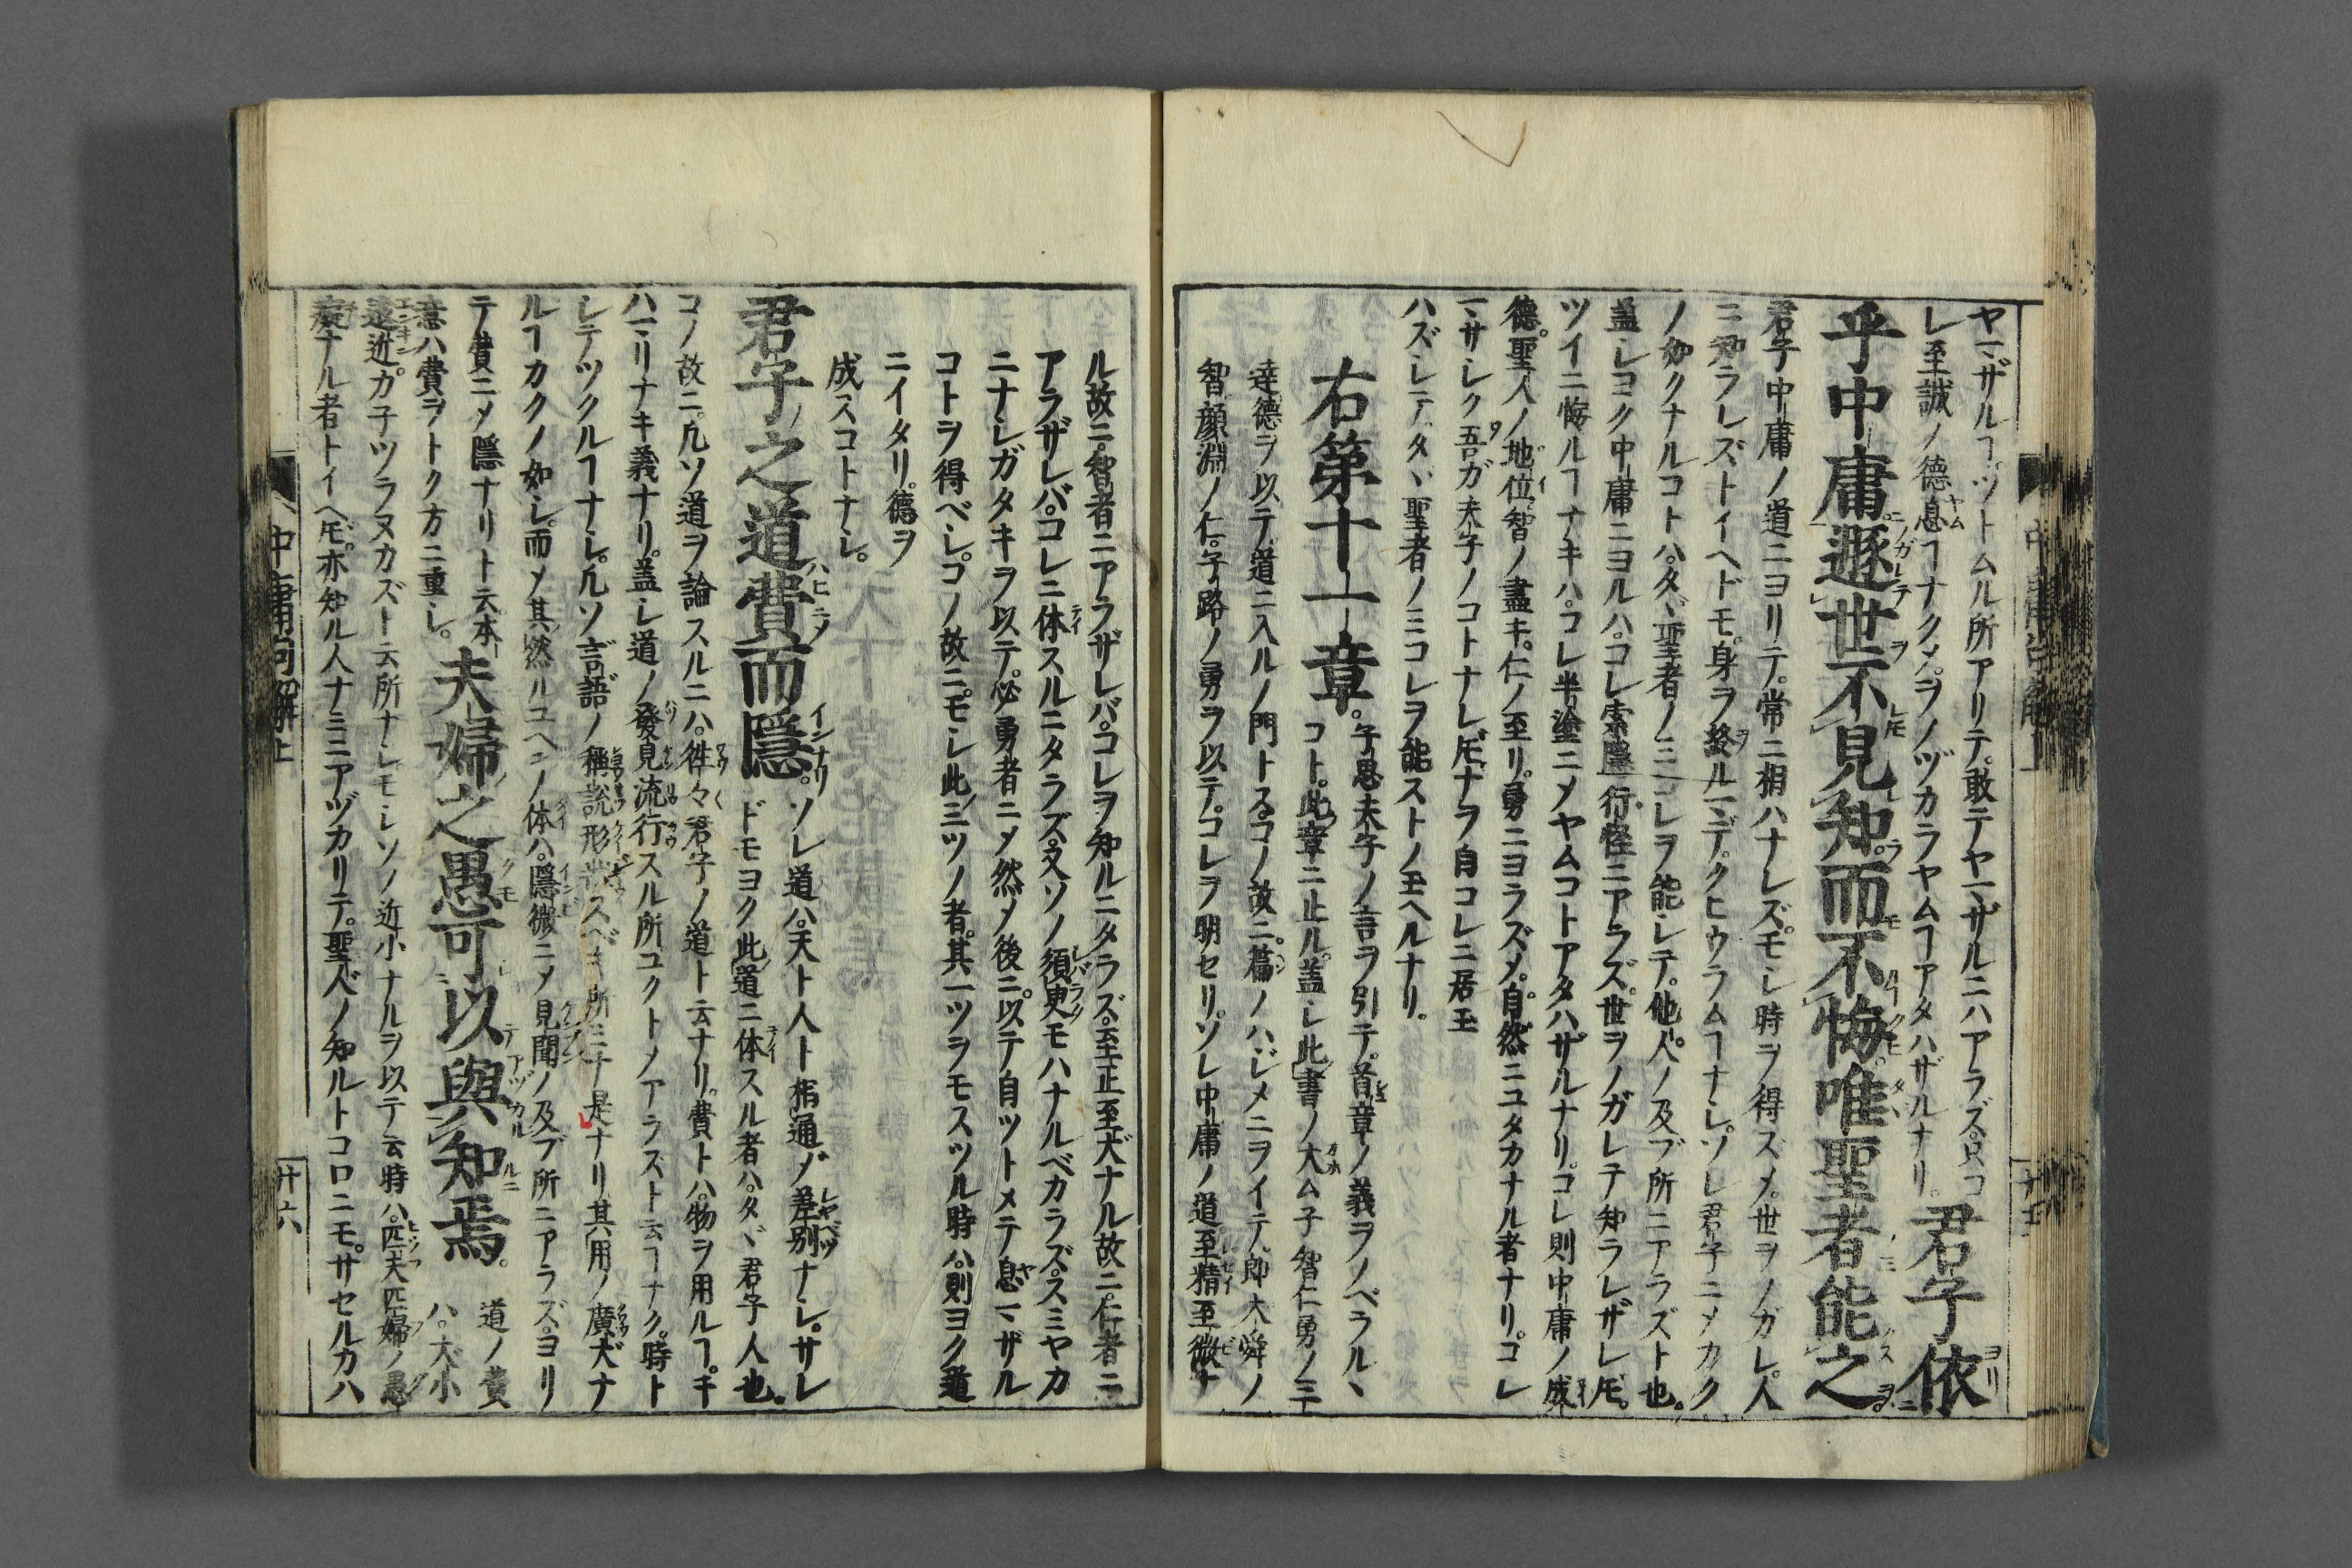 ヤマザルヿヅトムル所アリテ。敢テヤマザルニハアラズ。只コ
レ至誠ノ德息ヿナクメ。ヲノヅカラヤムヿアタハザルナリ。君子依
乎中庸遯世不見知而不悔唯聖者能之
君子中庸ノ道ニヨリテ。常ニ相ハナレズ。モシ時ヲ得ズメ。世ヲノガレ。人
ニ知ラレズトイヘドモ。身ヲ終ルマデ。クヒウラムヿナシ。ソレ君子ニメカク
ノ如クナルコトハ。タヾ聖者ノミコレヲ能シテ。他人ノ及ブ所ニアラズト也。
盖シヨク中庸ニヨルハ。コレ索隱行怪ニアラズ。世ヲノガレテ知ラレザレ𪜈。
ツイニ悔ルヿナキハ。コレ半塗ニメヤムコトアタハザルナリ。コレ則中庸ノ成
德。聖人ノ地位。智ノ盡キ。仁ノ至リ。勇ニヨラズメ。自然ニユタカナル者ナリ。コレ
マサシク吾ガ夫子ノコトナレ𪜈。ナヲ自コレニ居玉
ハズシテ。タヾ聖者ノミコレヲ能ストノ玉ヘルナリ。
右第十一章。子思夫子ノ言ヲ引テ。首章ノ義ヲノベラルヽ
コト。此章ニ止ル。盖シ此書ノ大ム子智仁勇ノ三
達德ヲ以テ。道ニ入ルノ門トス。コノ故ニ。篇ノハジメニヲイテ。即大舜ノ
智。顔淵ノ仁。子路ノ勇ヲ以テ。コレヲ明セリ。ソレ中庸ノ道。至精至微ナ
ル故ニ。智者ニアラザレバ。コレヲ知ルニタラズ。至正至大ナル故ニ。仁者ニ
アラザレバ。コレニ体スルニタラズ。又ソノ須臾モハナルベカラズ。スミヤカ
ニナシガタキヲ以テ。必勇者ニメ然メ後ニ。以テ自ツトメテ息マザル
コトヲ得ベシ。コノ故ニ。モシ此三ツノ者。其一ツヲモスツル時ハ。則ヨク道
ニイタリ。德ヲ
成スコトナシ。
君子之道費而隱。ソレ道ハ。天ト人ト相通メ差別ナシ。サレ
ドモヨク此道ニ体スル者ハ。タヾ君子人也。
コノ故ニ。凡ソ道ヲ論スルニハ。徃々君子ノ道ト云ナリ。費トハ。物ヲ用ルヿ。キ
ハマリナキ義ナリ。盖シ道ノ發見流行スル所。コクトメアラズト云ヿナク。時ト
シテツクルヿナシ。凡ソ言語ノ稱説。形スベキ所ミナ是ナリ其用ノ廣大ナ
ルヿカクノ如シ。而メ其然ルユヘンノ体ハ。隱微ニメ見聞ノ及ブ所ニアラズ。ヨリ
テ費ニメ隱ナリト云。本
意ハ費ヲトク方ニ重シ。夫婦之愚可以與知焉。道ノ費
ハ。大小
遠近。カ子ツラヌカズト云所ナシ。モシソノ近小ナルヲ以テ云時ハ。匹夫匹婦ノ愚
癡ナル者トイヘ𪜈。亦知ル人ナミニアヅカリテ。聖人ノ知ルトコロニモ。サセルカハ
中庸句解上
廿六